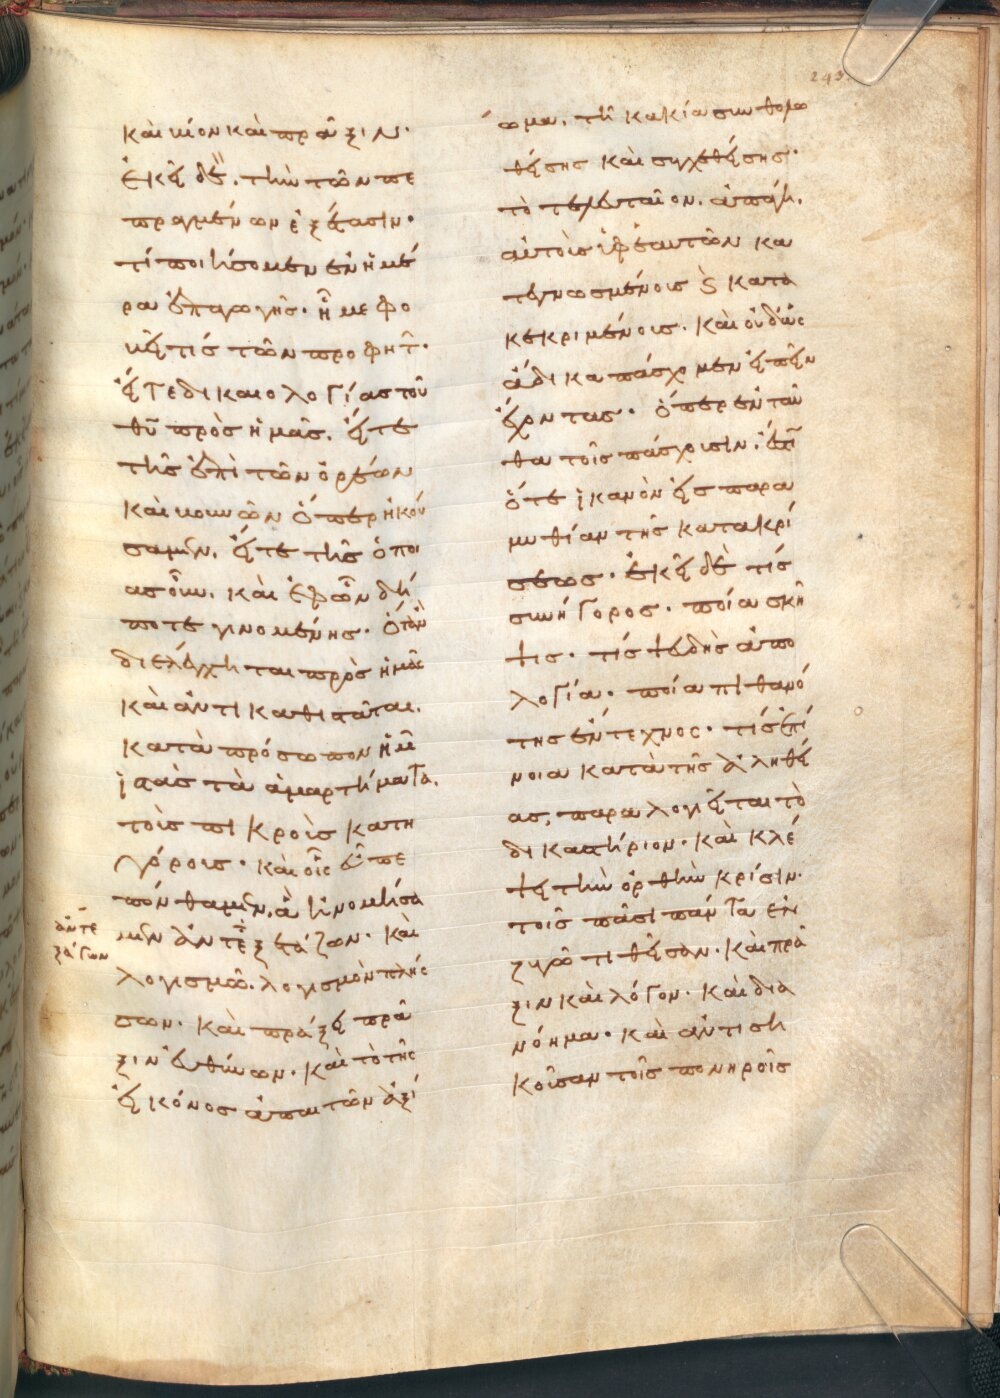 243
καὶ βίον καὶ πρᾶξιν·
ἐκεῖ δὲ. τὴν τῶν πε
πραγμένων ἐξέτασιν·
τί ποιήσομεν ἐν ἡμέ
ρα ἐπαγωγῆς· ἧ με φο
βεῖ τίς τῶν προφητ̑·
εἴτε δικαιολογίας τοῦ
θῦ πρὸς ἡμᾶς. εἴτε
τῆς ἐπὶ τῶν ὀρέων
καὶ βουνῶν ὅπερ ἠκού
σαμεν. εἴτε τῆς ὁποι
ασοῦν. καὶ ἐφ ὧν δή
ποτε γινομένης· ὅταν
διελέγχηται πρὸς ἡμᾶς
καὶ ἀντικαθίσταται.
κατὰ πρόσωπον ἡμῶν
ἱστὰς τὰ ἁμαρτήματα.
τοὺς πικροὺς κατη
γόρους· καὶ οἷς εὖ πε
πόνθαμεν. ἃ ἠνομήσα
μεν ἀντεξετάζων· καὶ
λογισμῶ. λογισμὸν πλήσ
σων· καὶ πράξει πρᾶ
ξιν εὐθύνων· καὶ τὸ τῆς
εἰκόνος ἀπαιτῶν ἀξί
ἀντε
ξάγων
ωμα. τῆ κακία συνθολω
θείσης καὶ συγχυθείσης·
τὸ τελευταῖον. ἀπάγη.
αὐτοὺς ὑφ ἑαυτῶν κα
τεγνωσμένους ϛ κατα
κεκριμένους· καὶ οὐδ ὡς
ἄδικα πάσχομεν εἰπεῖν
ἔχοντας· ὅπερ ἐνταῦ
θα τοῖς πάσχουσιν. ἐστὶν
ὅτε ἱκανὸν εἰς παρα
μυθίαν τῆς κατακρί
σεως· ἐκεῖ δὲ τίς
συνήγορος· ποία σκῆ
ψις· τίς ψευδὴς ἀπο
λογία· ποία πιθανό
της ἔντεχνος· τίς ἐπί
νοια κατὰ τῆς ἀληθεί
ας, παραλογιεῖται τὸ
δικαστήριον· καὶ κλέ
ψει τὴν ὀρθὴν κρίσιν·
τοῖς πᾶσι πάντα ἐν
ζυγῶ τιθεῖσαν· καὶ πρᾶ
ξιν καὶ λόγον· καὶ δια
νόημα· καὶ ἀντιση
κοῦσαν τοῖς πονηροῖς